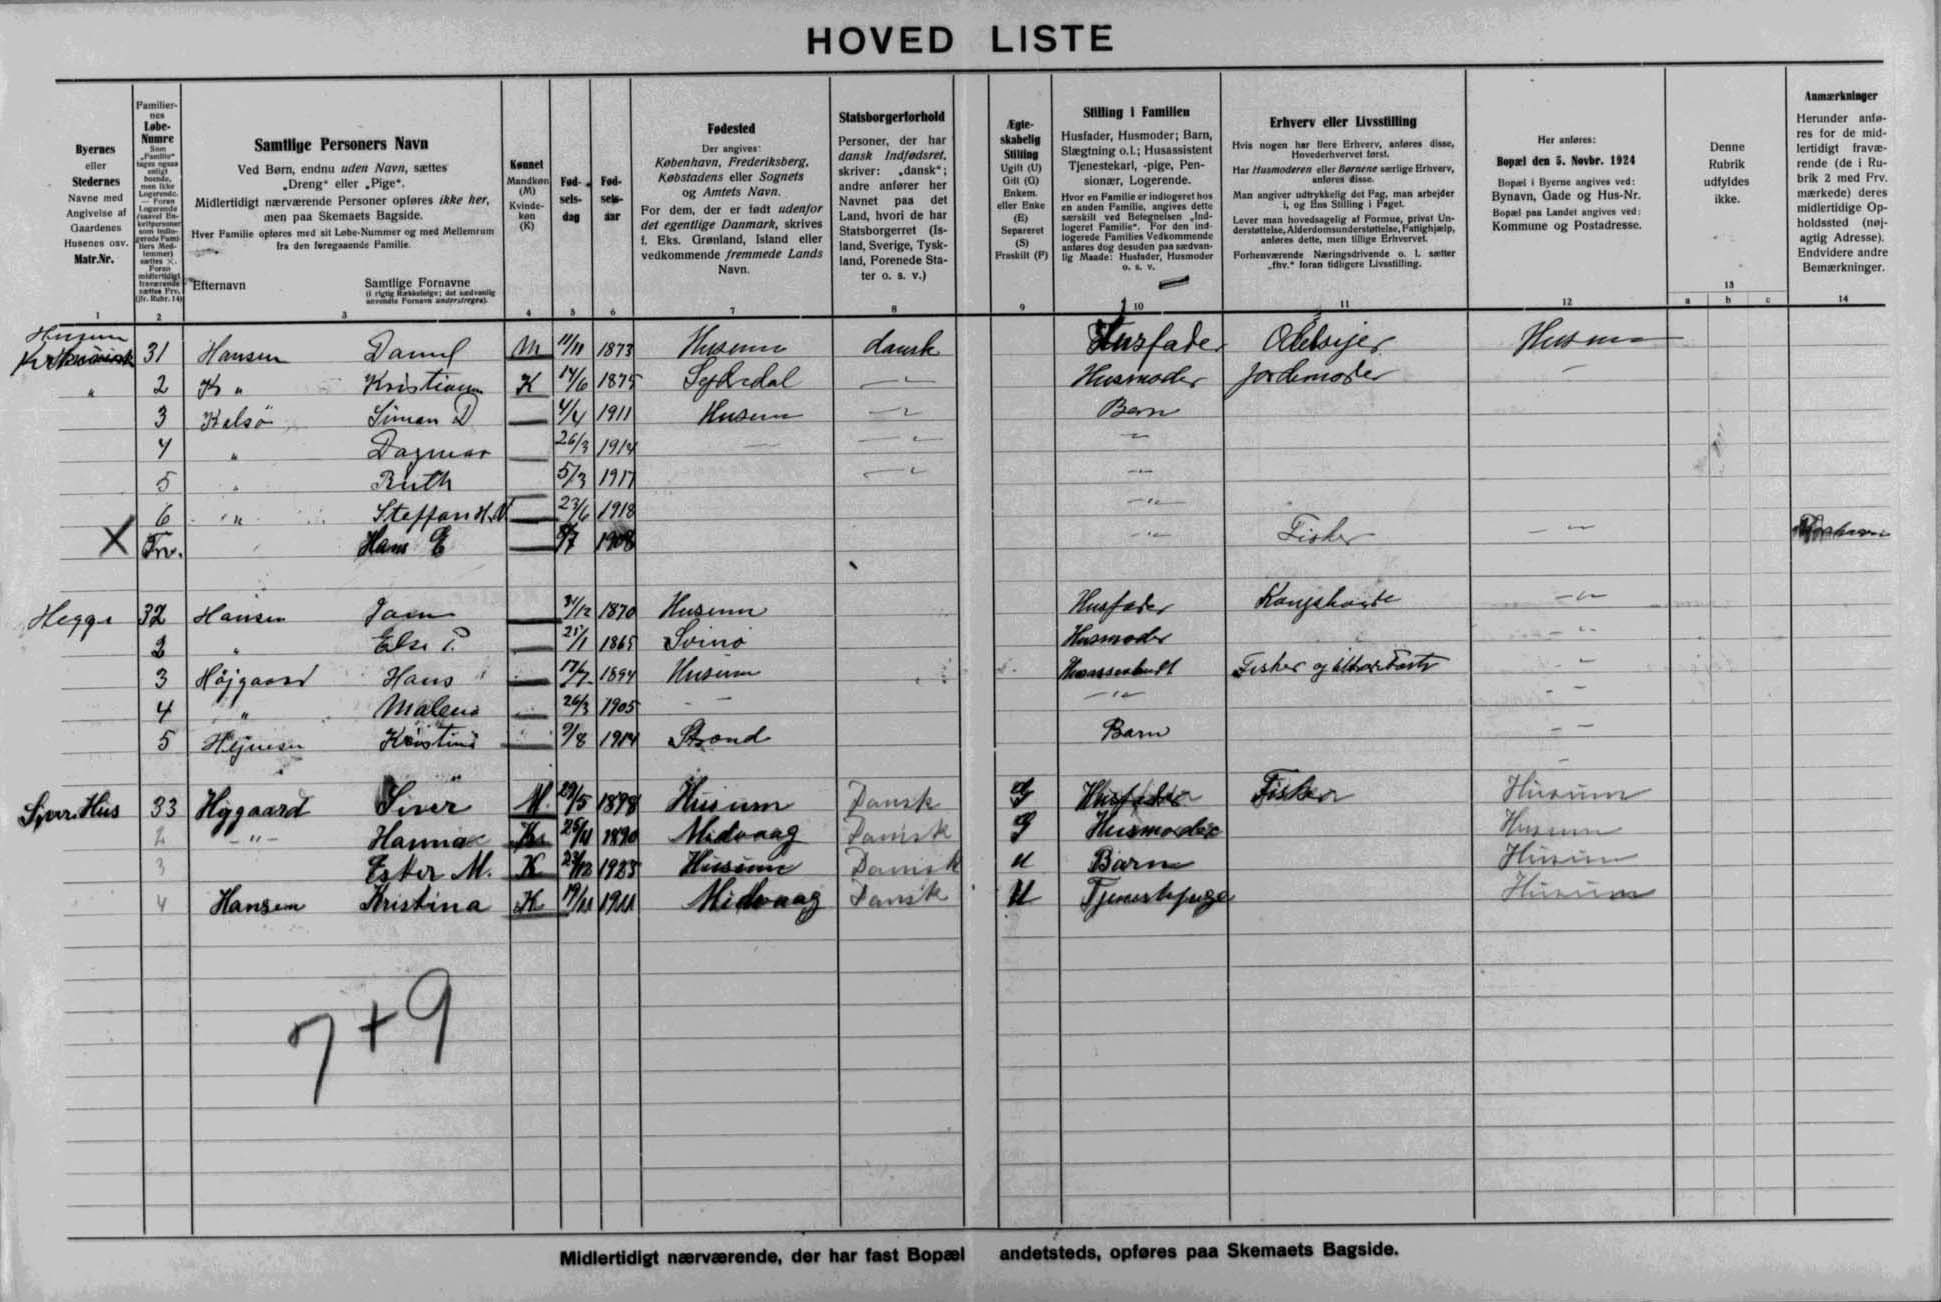 HOVED LISTE
Byernes
eller
Stedernes
Navne med
Angivelse af
Gaardenes
Husenes osv.
Matr.Nr.
1
Familier-
nes
Løbe-
Numre
Som
„Familie“
tages ogsaa
enligt
boende,
men ikke
Logerende.
— Foran
Logerende
2
Samtlige Personers Navn
Ved Børn, endnu uden Navn, sættes
„Dreng“ eller „Pige“.
Midlertidigt nærværende Personer opføres ikke her,
men paa Skemaets Bagside.
Hver Familie opføres med sit Løbe-Nummer og med Mellemrum
fra den foregaaende Familie.
Efternavn
Samtlige Fornavne
(i rigtig Rækkefølge; det sædvanlig
anvendte Fornavn understreges).
3
Kønnet
Mandkøn
(M)
Kvinde-
køn
(K)
4
Fød-
sels-
dag
5
Fød-
sels-
aar
6
Fødested
Der angives:
København, Frederiksberg,
Købstadens eller Sognets
og Amtets Navn.
For dem, der er født udenfor
det egentlige Danmark, skrives
f. Eks. Grønland, Island eller
vedkommende fremmede Lands
Navn.
7
Statsborgerforhold
Personer, der har
dansk Indfødsret,
skriver: „dansk“;
andre anfører her
Navnet paa det
Land, hvori de har
Statsborgerret (Is-
land, Sverige, Tysk-
land, Forenede Sta-
ter o. s. v.)
8
Ægte-
skabelig
Stilling
Ugift (U)
Gift (G)
Enkem.
eller Enke
(E)
Separeret
(S)
Fraskilt (F)
9
Stilling i Familien
Husfader, Husmoder; Barn,
Slægtning o.l.; Husassistent
Tjenestekarl, -pige, Pen-
sionær, Logerende.
Hvor en Familie er indlogeret hos
en anden Familie, angives dette
særskilt ved Betegnelsen „Ind-
logeret Familie“. For den ind-
logerede Families Vedkommende
anføres dog desuden paa sædvan-
lig Maade: Husfader, Husmoder
o. s. v.
10
Erhverv eller Livsstilling
Hvis nogen har flere Erhverv, anføres disse,
Hovederhvervet først.
Har Husmoderen eller Børnene særlige Erhverv,
anføres disse.
Man angiver udtrykkelig det Fag, man arbejder
i, og Ens Stilling i Faget.
Lever man hovedsagelig af Formue, privat Un-
derstøttelse, Alderdomsunderstøttelse, Fattighjælp,
anføres dette, men tillige Erhvervet.
Forhenværende Næringsdrivende o. l. sætter
„fhv.“ foran tidligere Livsstilling.
11
Her anføres:
Bopæl den 5. Novbr. 1924
Bopæl i Byerne angives ved:
Bynavn, Gade og Hus-Nr.
Bopæl paa Landet angives ved:
Kommune og Postadresse.
12
Denne
Rubrik
udfyldes
ikke.
13
a b c
Anmærkninger
Herunder anfø-
res for de mid-
lertidigt fravæ-
rende (de i Ru-
brik 2 med Frv.
mærkede) deres
midlertidige Op-
holdssted (nøj-
agtig Adresse).
Endvidere andre
Bemærkninger.
14
Husum
31 Hansen Daniel M 11/11 1873 Husum dansk Husfader Husum
„ 2 „ K 14/6 1875 Husmoder Jordemoder
3 Kalsø Simon D 4/4 1911 Husum Barn
4 „ Dagmar 26/3 1914
5 „ Ruth 5/3 1917
6 „ Steffan H. 23/6 1918
X Frv. Hans E 1908 Fisker
Hegge 32 Hansen 1870 Husum Husfader
2 „ Else P. 25/1 1865 Svinø Husmoder
3 Højgaard Hans 17/7 1894 Husum Fisker og
4 „ Malene 26/3 1905
5 Kristine 9/8 1914 Barn
Siver Hus 33 Høgaard Siver M. 29/5 1898 Husum Dansk G Husfader Fisker Husum
2 -"- Hanna K 1890 Midvaag Dansk G Husmoder Husum
3 Ester M. K 23/12 1923 Husum Dansk U Barn Husum
4 Hansen Kristina K 19/11 1911 Midvaag Dansk U Tjenestepige Husum
7+9
Midlertidigt nærværende, der har fast Bopæl andetsteds, opføres paa Skemaets Bagside.